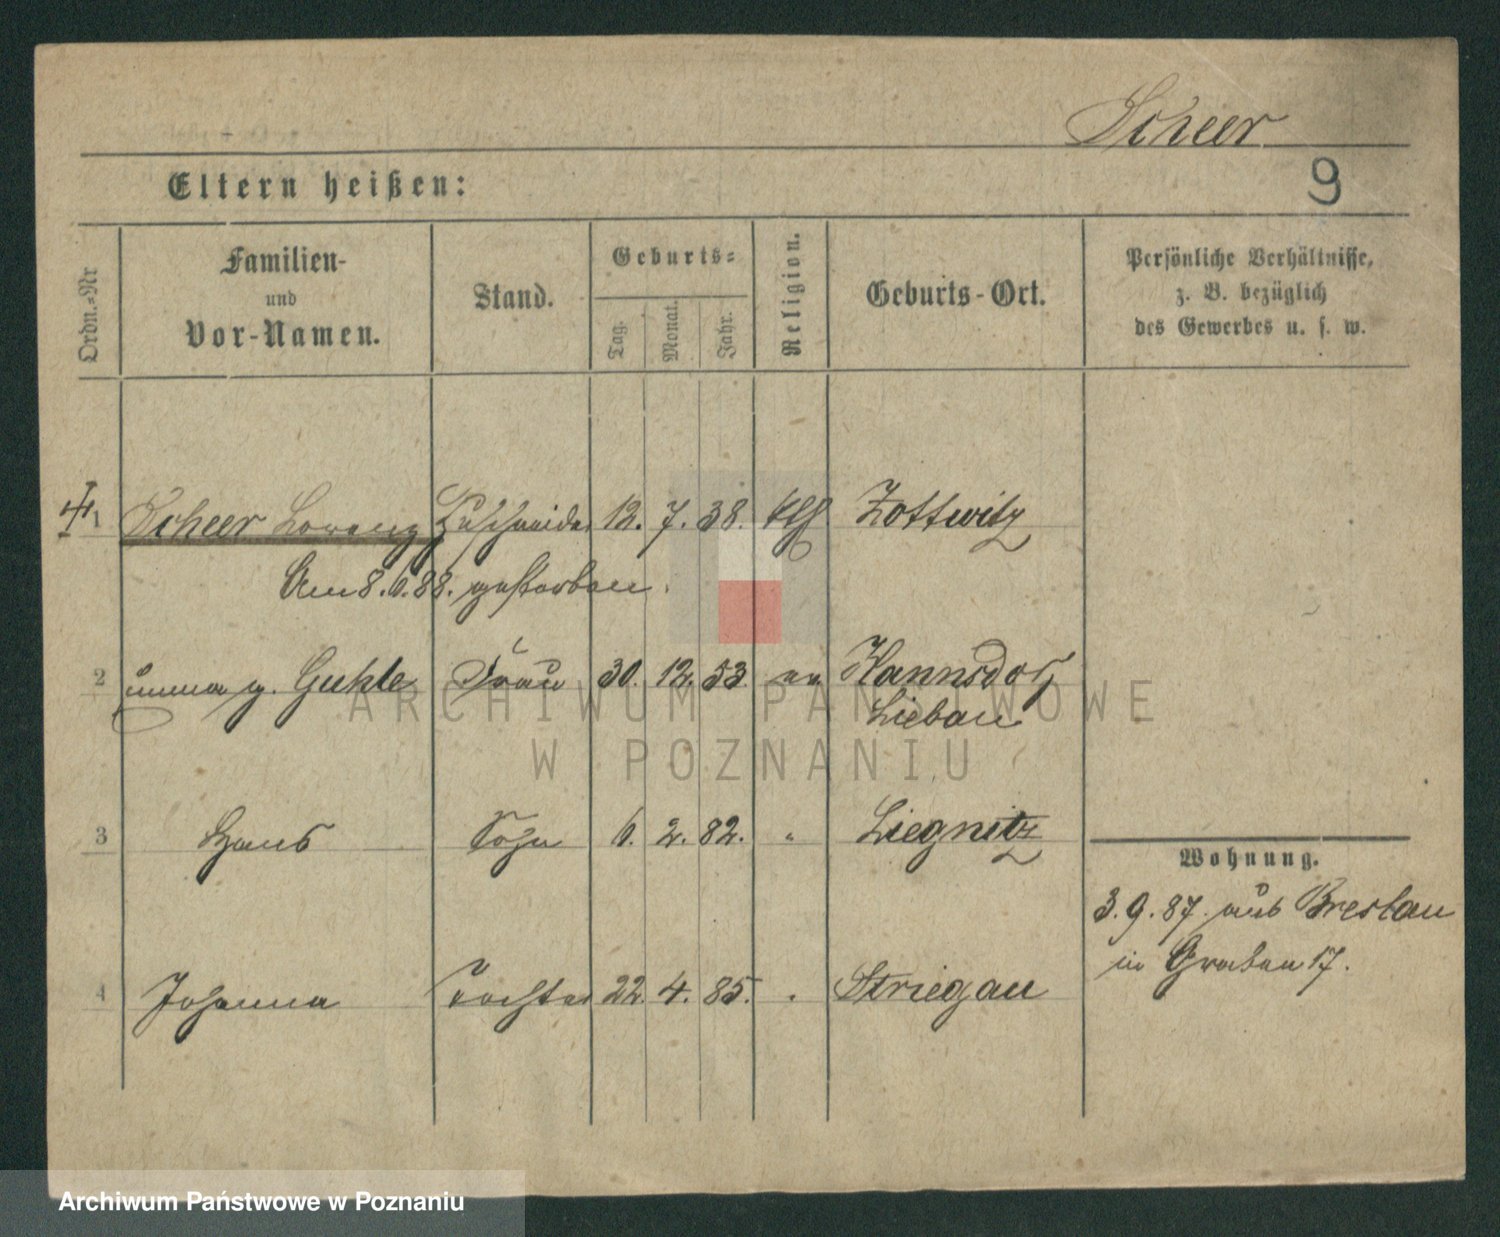 Scheer
9
Eltern heißen:
Ordn.=Nr
Familien-
und
Vor-Namen.
Stand.
Geburts=
Tag.
Monat.
Jahr.
Religion.
Geburts-Ort.
Persönliche Verhältnisse,
z. B. bezüglich
des Gewerbes u. s. w.
1 Scheer Lorenz Zuschneider 12. 7. 38. kth Zottwitz
Am 8. 6. 88. gestorben.
2 g. Guhle Frau 30. 12. 53 ev Hannsdorf
Liebau
3 Hans Sohn 6. 2. 82. " Liegnitz
Wohnung.
3. 9. 87. aus Breslau
in Graben 17.
4 Johanna Tochter 22. 4. 85. " Striegau
ARCHIWUM PAŃSTWOWE
W POZNANIU
Archiwum Państwowe w Poznaniu